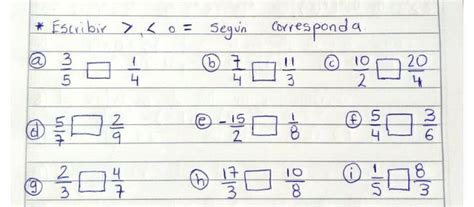 * Escribir >, < o = según corresponda.
ⓐ 3/5 □ 1/4 ⓑ 7/4 □ 11/3 ⓒ 10/2 □ 20/4
ⓓ 5/7 □ 2/9 ⓔ -15/2 □ 1/8 ⓕ 5/4 □ 3/6
ⓖ 2/3 □ 4/7 ⓗ 17/3 □ 10/8 ⓘ 1/5 □ 8/3